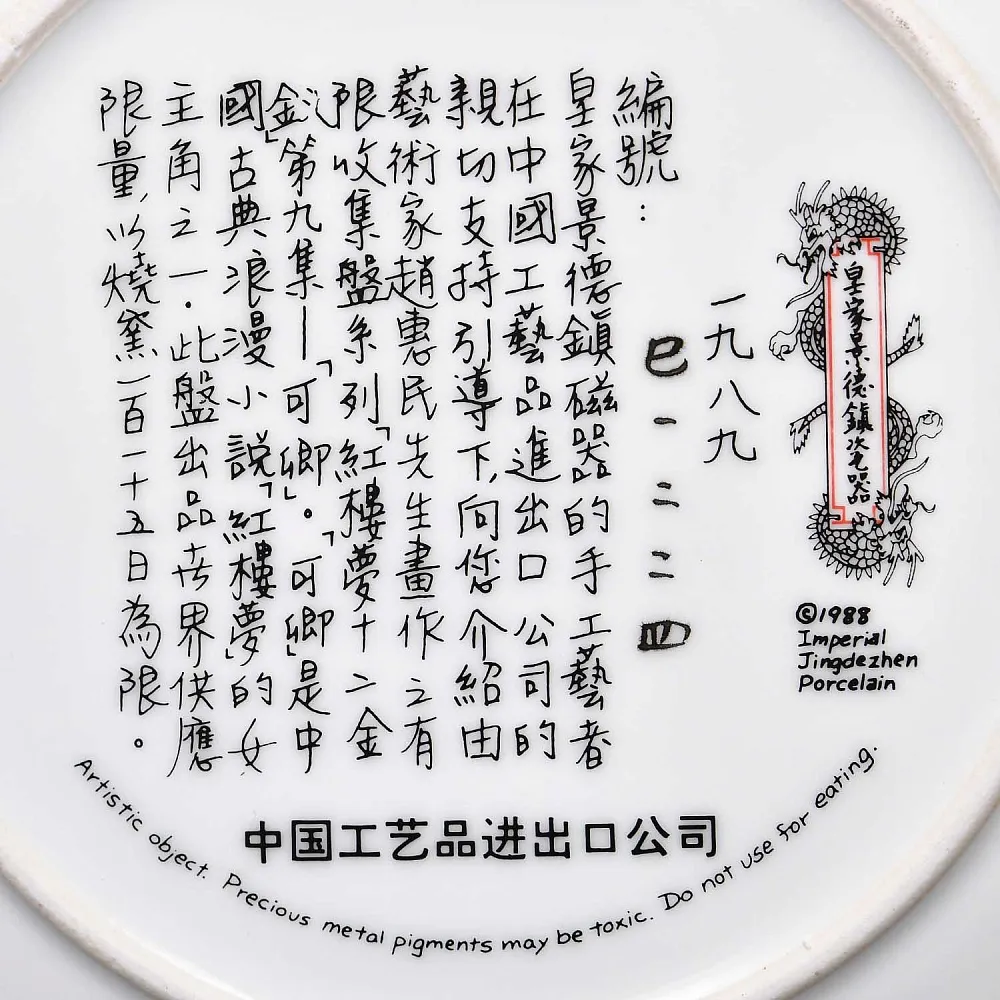 皇家景德鎮瓷器
©1988
Imperial
Jingdezhen
Porcelain
一九八九
巳一二二四
編號：
皇家景德鎮磁器的手工藝者
在中國工藝品進出口公司的
親切支持引導下,向您介紹由
藝術家趙惠民先生畫作之有
限收集盤系列「紅樓夢十二金
釵」第九集—「可卿」。「可卿」是中
國古典浪漫小說「紅樓夢」的女
主角之一．此盤出品世界供應
限量,以燒窯一百一十五日為限。
中国工艺品进出口公司
Artistic object. Precious metal pigments may be toxic. Do not use for eating.